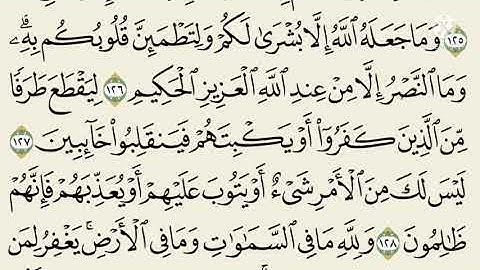 ١٢٥ وَمَا جَعَلَهُ ٱللَّهُ إِلَّا بُشۡرَىٰ لَكُمۡ وَلِتَطۡمَئِنَّ قُلُوبُكُم بِهِۦۗ
وَمَا ٱلنَّصۡرُ إِلَّا مِنۡ عِندِ ٱللَّهِ ٱلۡعَزِيزِ ٱلۡحَكِيمِ ١٢٦ لِيَقۡطَعَ طَرَفٗا
مِّنَ ٱلَّذِينَ كَفَرُوٓاْ أَوۡ يَكۡبِتَهُمۡ فَيَنقَلِبُواْ خَآئِبِينَ ١٢٧
لَيۡسَ لَكَ مِنَ ٱلۡأَمۡرِ شَيۡءٌ أَوۡ يَتُوبَ عَلَيۡهِمۡ أَوۡ يُعَذِّبَهُمۡ فَإِنَّهُمۡ
ظَٰلِمُونَ ١٢٨ وَلِلَّهِ مَا فِي ٱلسَّمَٰوَٰتِ وَمَا فِي ٱلۡأَرۡضِۚ يَغۡفِرُ لِمَن